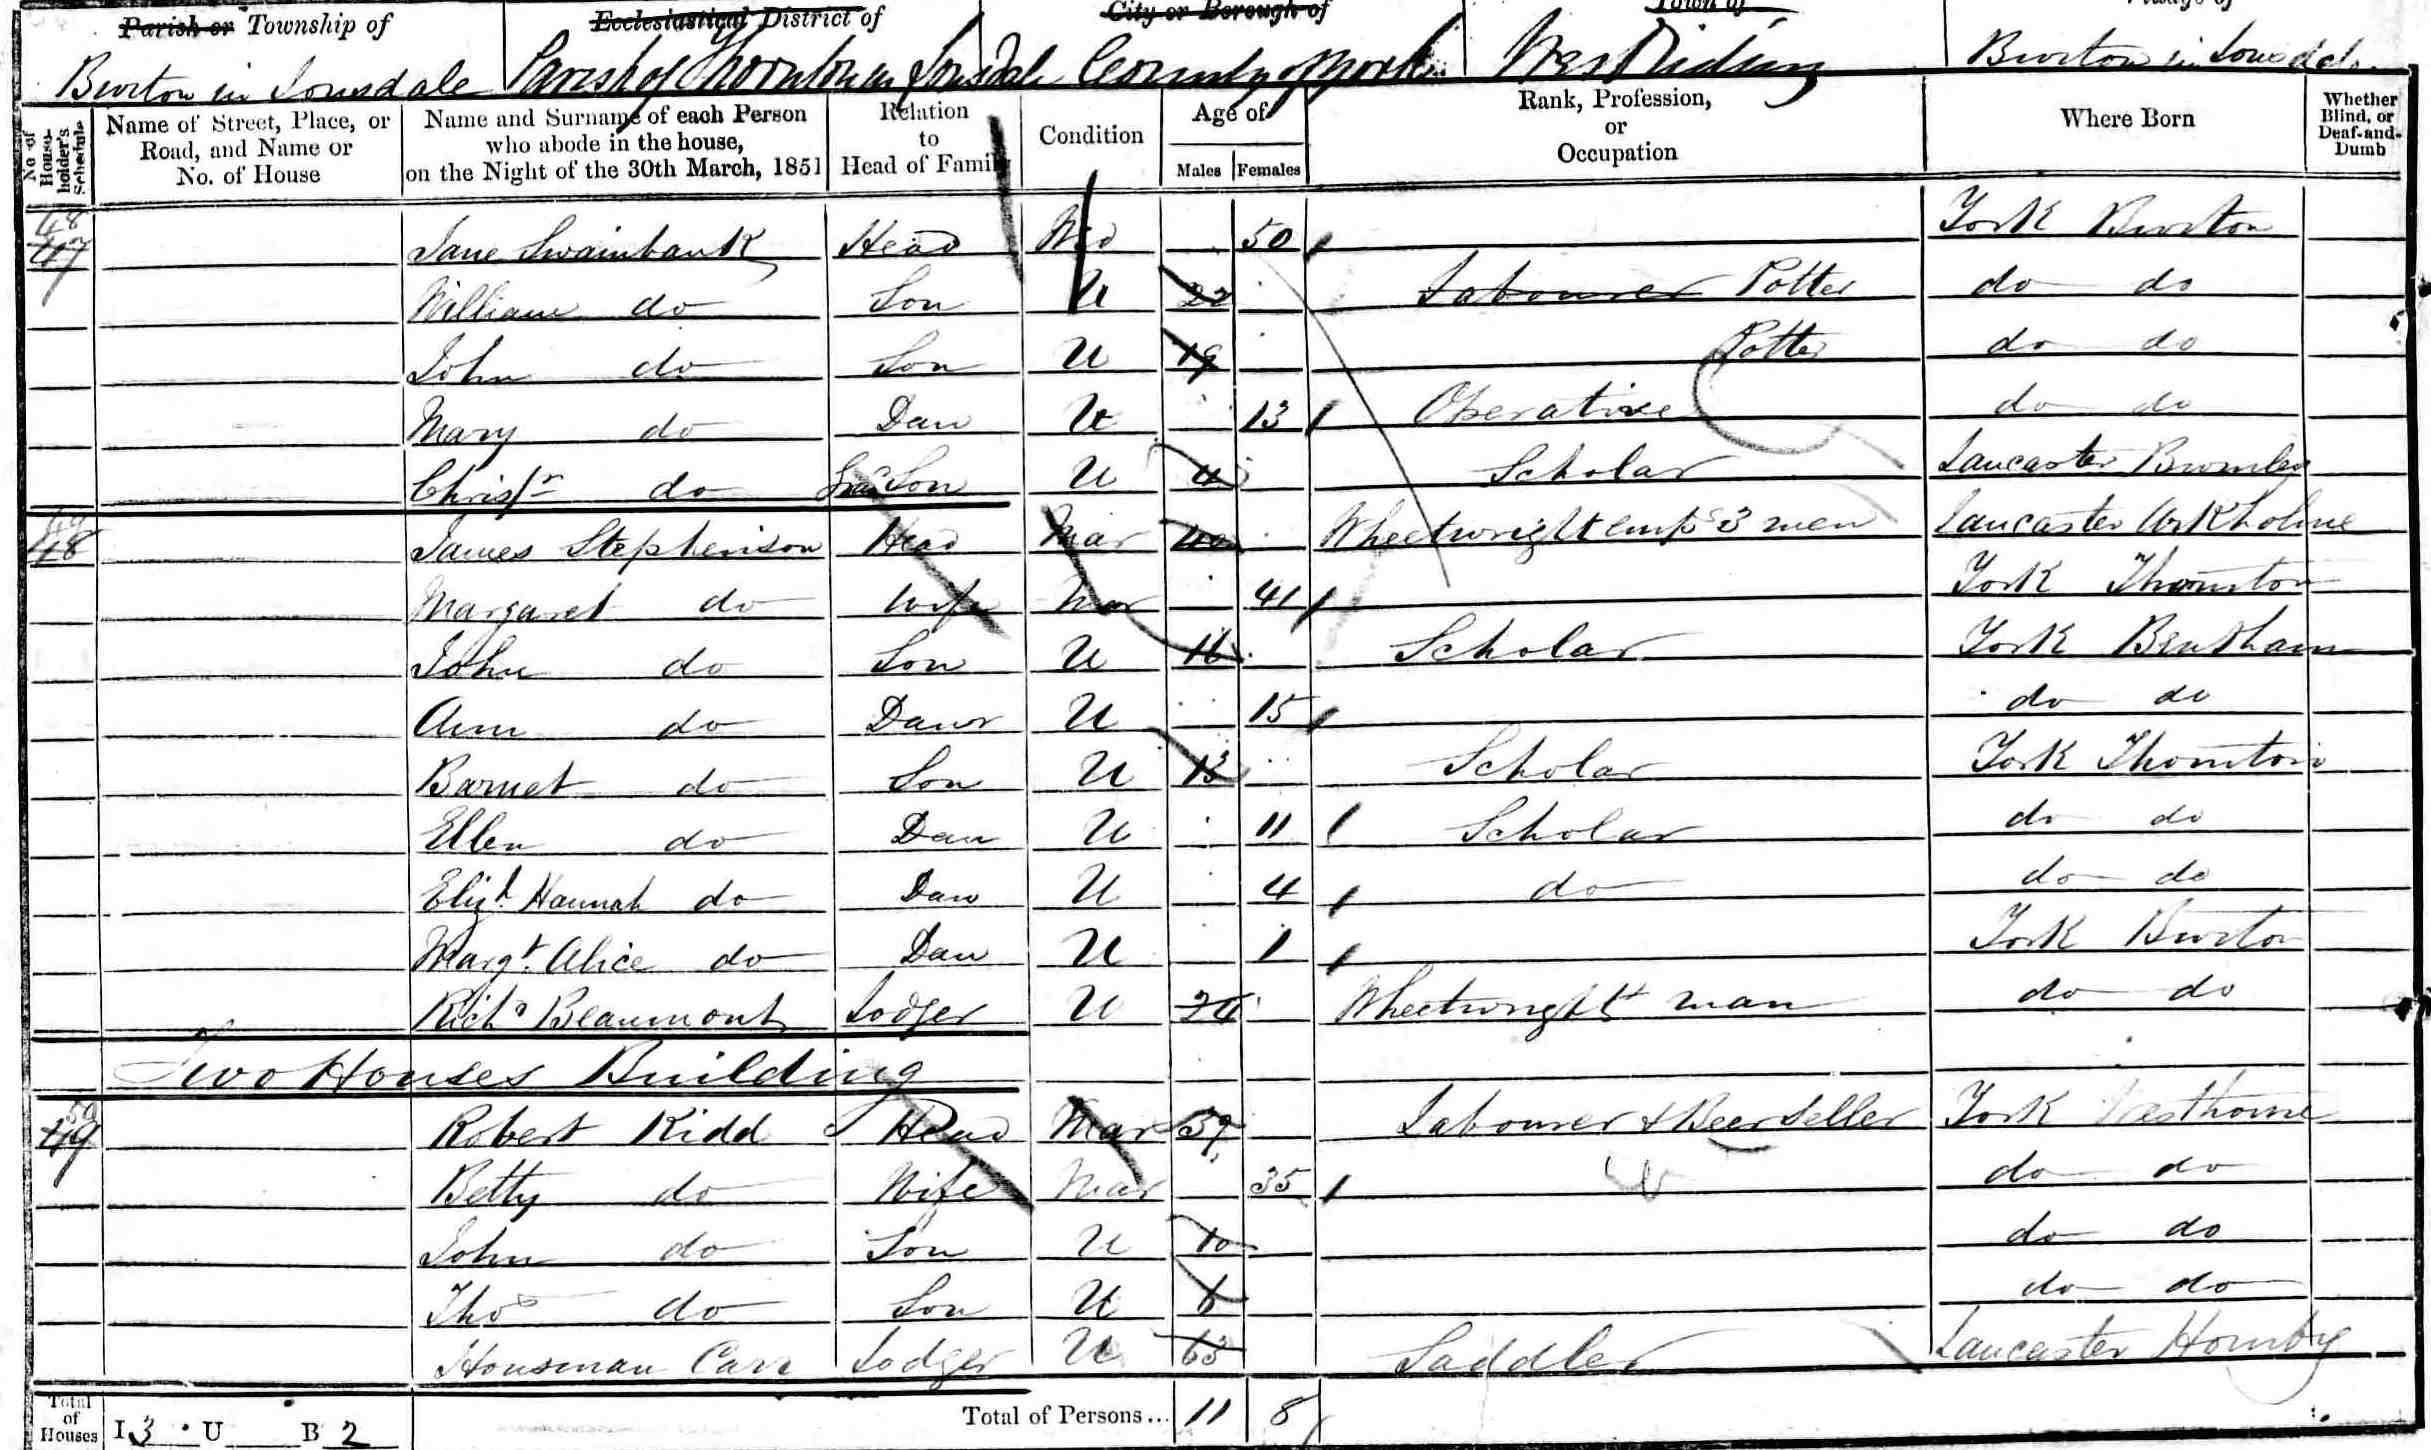 Parish or Township of Ecclesiastical District of City or Borough of Town of Village of
Burton in Lonsdale Parish of Thornton in Lonsdale County of York West Riding Burton in Lonsdale
No. of Householder's Schedule
Name of Street, Place, or Road, and Name or No. of House
Name and Surname of each Person who abode in the house, on the Night of the 30th March, 1851
Relation to Head of Family
Condition
Age of
Males Females
Rank, Profession, or Occupation
Where Born
Whether Blind, or Deaf-and-Dumb
48 47 Jane Swainbank Head Wid 50 York Burton
William do Son U 22 Labourer Potter do do
John do Son U 19 Potter do do
Mary do Dau U 13 Operative do do
Christr do Son U Scholar Lancaster
49 48 James Stephenson Head Mar 40 Wheelwright emp 3 men Lancaster Arkholme
Margaret do Wife Mar 41 York Thornton
John do Son U 16 Scholar York Bentham
Ann do Daur U 15 do do
Barnet do Son U 13 Scholar York Thornton
Ellen do Dau U 11 Scholar do do
Elizh Hannah do Dau U 4 do do do
Margt. Alice do Dau U 1 York Burton
Richd Beaumont Lodger U 24 Wheelwright man do do
Two Houses Building
50 49 Robert Kidd Head Mar 39 Labourer & Beerseller York
Betty do Wife Mar 35 do do
John do Son U 10 do do
Thos do Son U 6 do do
Housman Carr Lodger U 63 Saddler Lancaster Hornby
Total of Houses I 3 U B 2 Total of Persons... 11 8